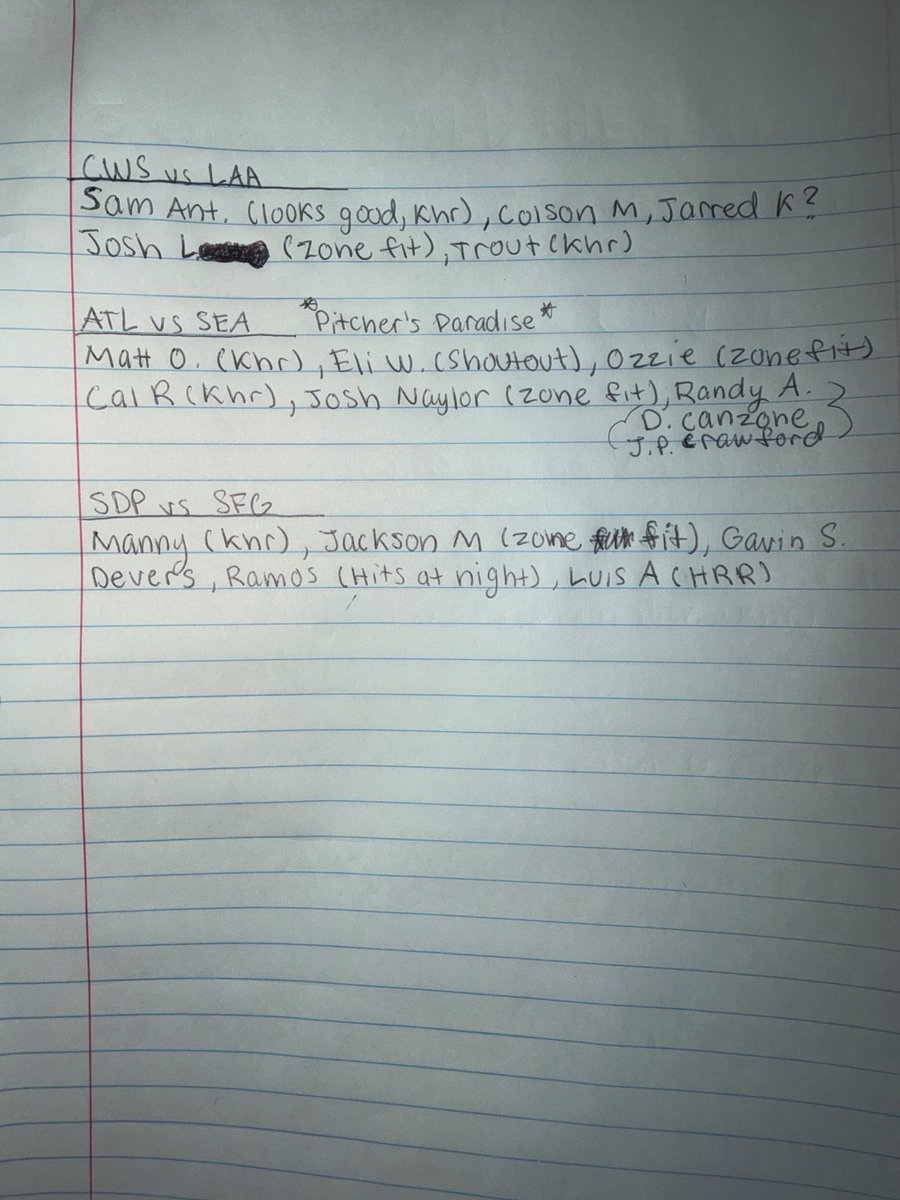 CWS vs LAA
Sam Ant. (looks good, khr), Colson M, Jarred K?
Josh L (zone fit), Trout (khr)
ATL vs SEA *Pitcher's Paradise*
Matt O. (khr), Eli W. (Shoutout), Ozzie (zone fit)
Cal R (khr), Josh Naylor (zone fit), Randy A.
(D. Canzone
J.P. Crawford)
SDP vs SFG
Manny (khr), Jackson M (zone fit), Gavin S.
Devers, Ramos (Hits at night), Luis A (HRR)